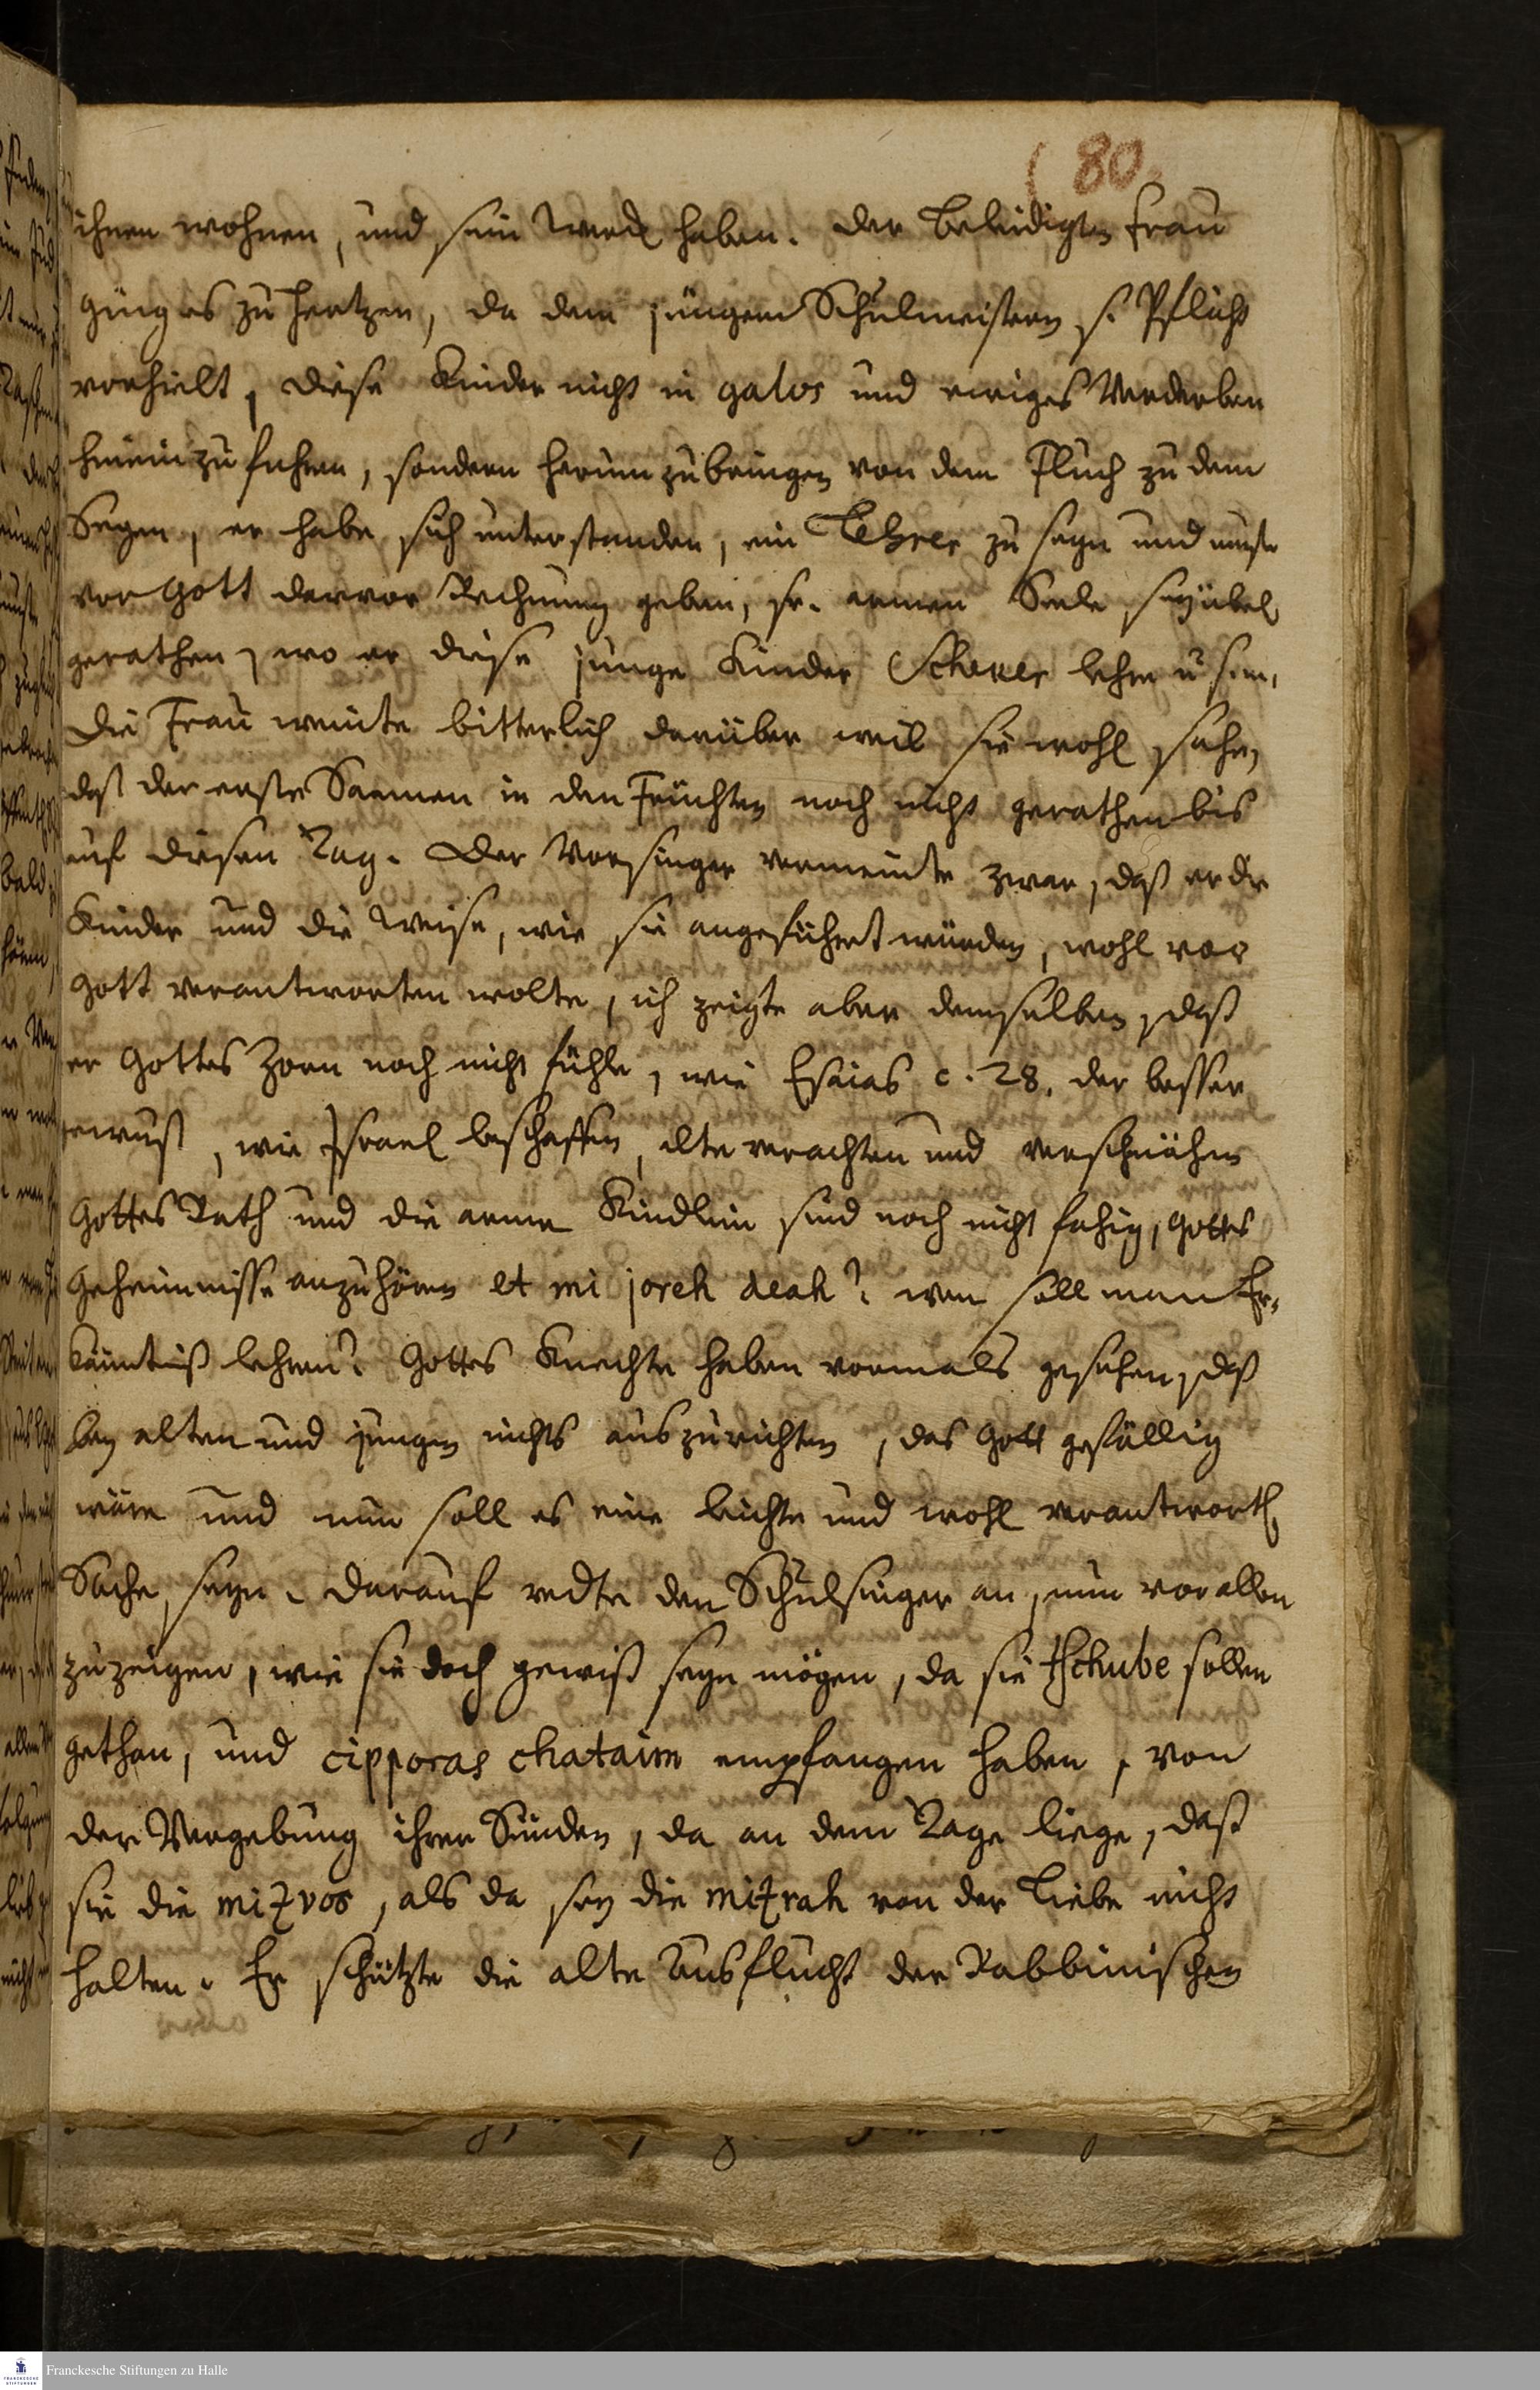 (80.
ihnen wohnen, und sein Werck haben. Der beleidigten Frau
ging es zu Hertzen, da dem jungen Schulmeistern s. Pflicht
vorhielt, diese Kinder nicht in galus und ewiges Verderben
hinein zu führen, sondern herum zu bringen von dem Fluch zu dem
Segen, er habe sich unterstanden, ein Lehrer zu seyn und müste
vor Gott davor Rechnung geben, sr. armen Seele sey übel
gerathen, wo er diese junge Kinder Scheker lehre u
Die Frau weinte bitterlich darüber weil sie wohl sahe,
daß der erste Saamen in den Früchten noch nicht gerathen bis
auf diesen Tag. Der Vorsinger vermeinte zwar, daß er die
Kinder und die Weise, wie sie angeführet würden, wohl vor
Gott verantworten wolte, ich zeigte aber demselben, daß
er Gottes Zorn noch nicht fühle, wie Esaias c. 28. der besser
gewust, wie Israel beschaffen, alte verachten und verschmähen
Gottes Rath und die arme Kindlein sind noch nicht fähig, Gottes
Geheimnisse anzuhören et mi joreh deah? wen soll man Er-
käntniß lehren? Gottes Knechte haben vormals gesehen, daß
bey alten und jungen nichts auszurichten, das Gott gefällig
wäre und nun soll es eine leichte und wohl verantwortl.
Sache seyn. Darauf redte den Schulsinger an, nun vor allen
zu zeigen, wie sie doch gewiß seyn mögen, da sie tschube sollen
gethan, und cipporas chataim empfangen haben, von
der Vergebung ihrer Sünden, da an dem Tage liege, daß
sie die mitzvos, als da sey die mitzvah von der Liebe nicht
halten. Er schützte die alte Ausflucht der Rabbinischen
Franckesche Stiftungen zu Halle